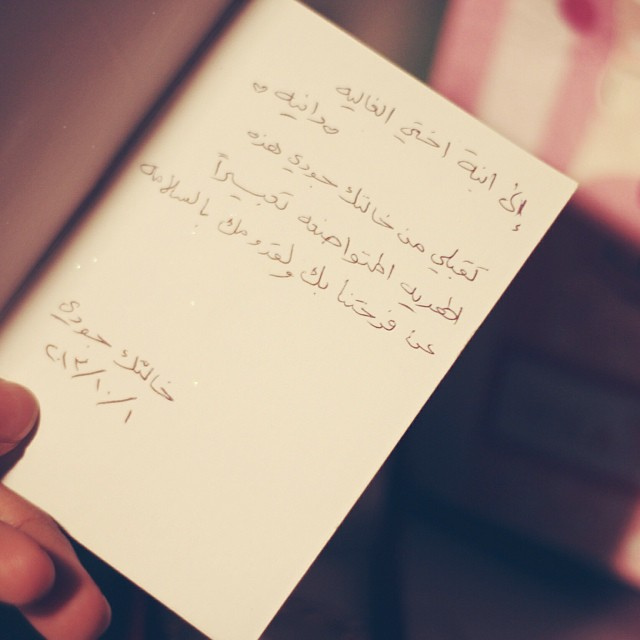 إلى ابنة اختي الغاليه
♡دانيه♡
تقبلي من خالتك جودي هذه
الهديه المتواضعه تعبيراً
عن فرحتنا بك ولقدومك بالسلامه
خالتك جودي
٢٠١٣/١٠/١